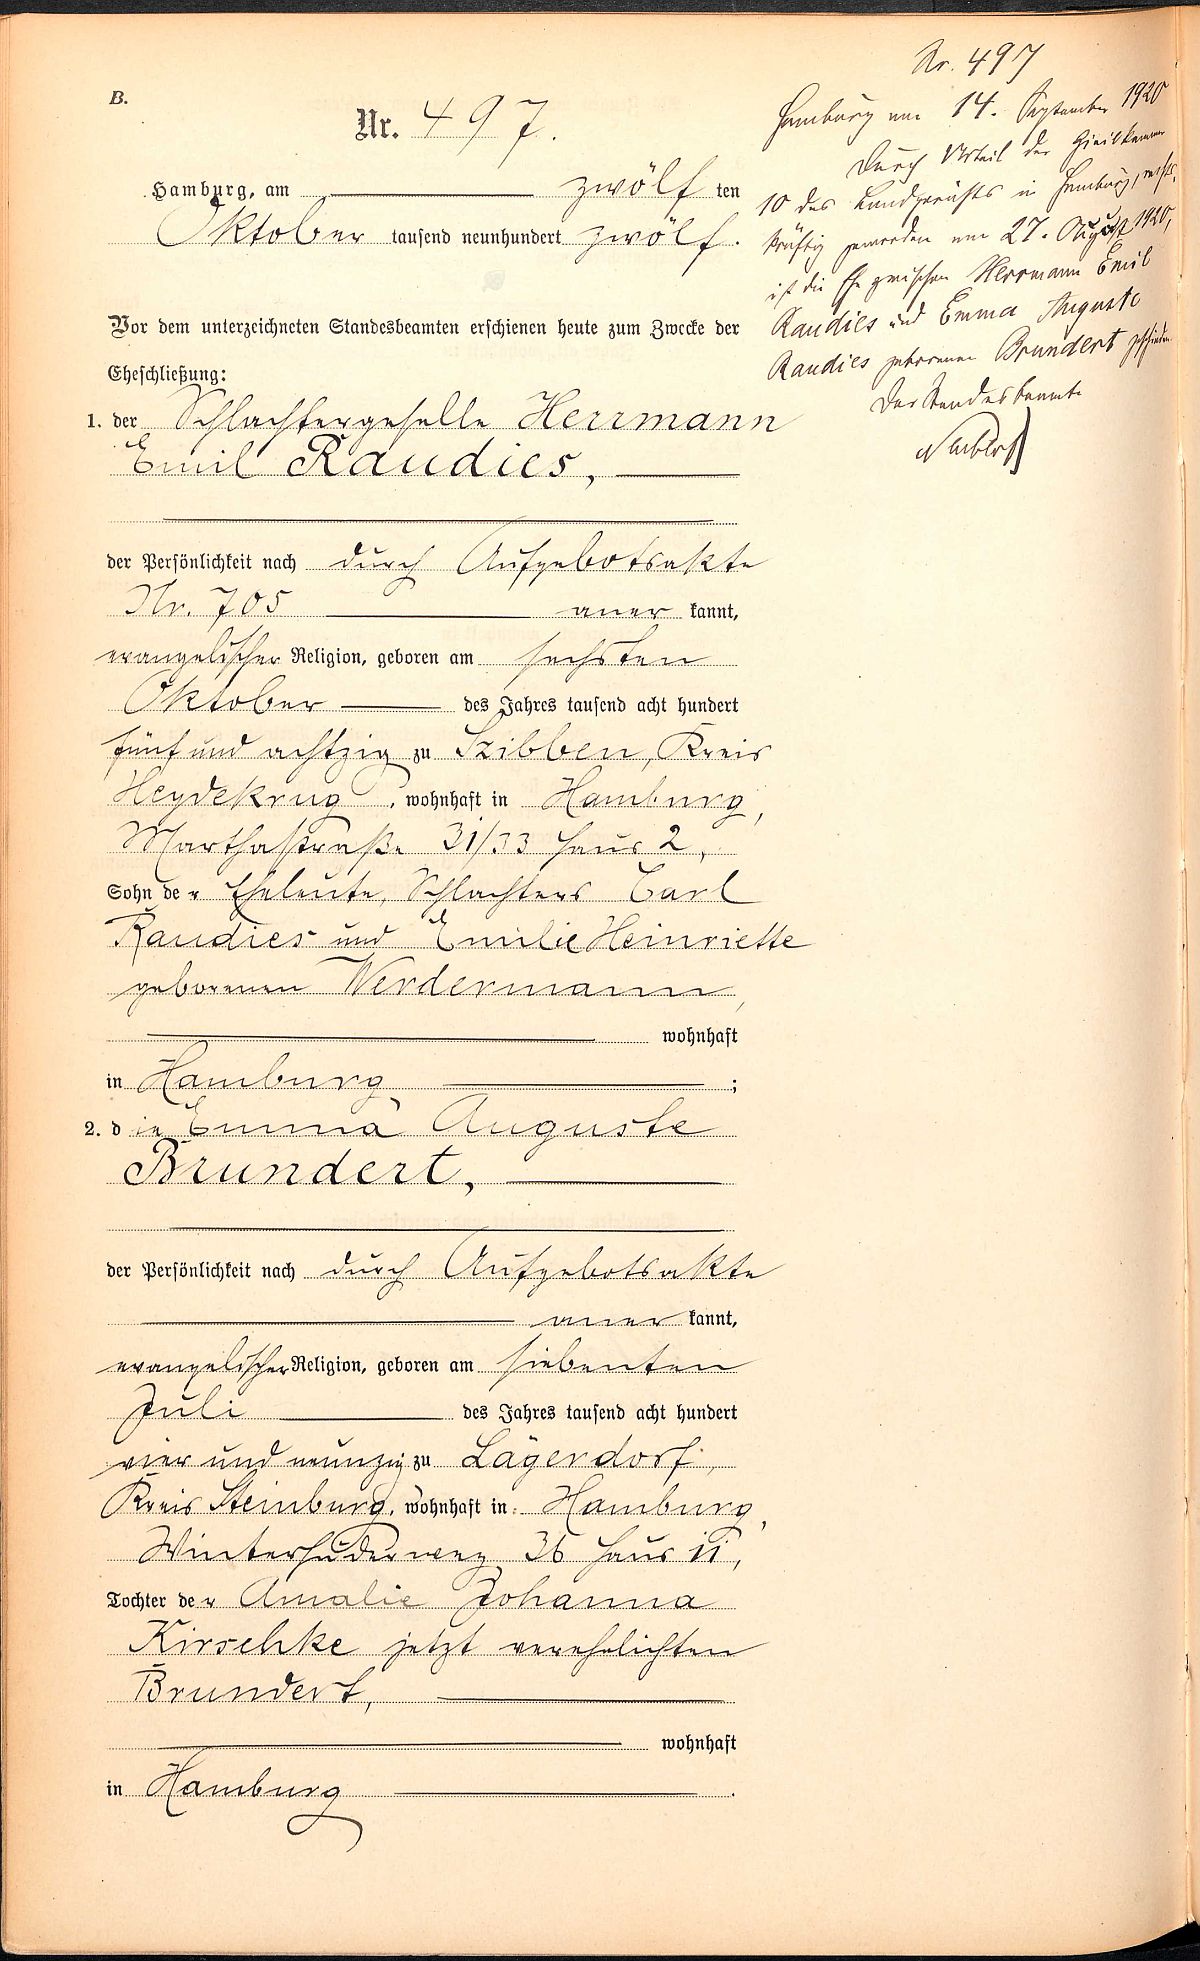 B.
Nr. 497.
Hamburg, am zwölf ten
Oktober tausend neunhundert zwölf.
Vor dem unterzeichneten Standesbeamten erschienen heute zum Zwecke der
Eheschließung:
1. der Schlachtergeselle Herrmann
Emil Raudies,
der Persönlichkeit nach durch Aufgebotsakte
Nr. 705 aner kannt,
evangelischer Religion, geboren am sechsten
Oktober des Jahres tausend acht hundert
fünf und achtzig zu Szibben, Kreis
Heydekrug, wohnhaft in Hamburg,
Marthastraße 31/33 Haus 2,
Sohn der Eheleute, Schlachters Carl
Raudies und Emilie Heinriette
geborenen Werdermann,
wohnhaft
in Hamburg ;
2. die Emma Auguste
Brundert,
der Persönlichkeit nach durch Aufgebotsakte
aner kannt,
evangelischer Religion, geboren am siebenten
Juli des Jahres tausend acht hundert
vier und neunzig zu Lägerdorf,
Kreis Steinburg, wohnhaft in Hamburg,
Winterhuderweg 36 Haus 11,
Tochter der Amalie Johanna
Kirschke jetzt verehelichten
Brundert,
wohnhaft
in Hamburg .
Nr. 497
Hamburg am 14. September 1920
Durch Urteil der Zivilkammer
10 des Landgerichts in Hamburg, rechts-
kräftig geworden am 27. August 1920,
ist die Ehe zwischen Herrmann Emil
Raudies und Emma Auguste
Raudies geborenen Brundert geschieden.
Der Standesbeamte